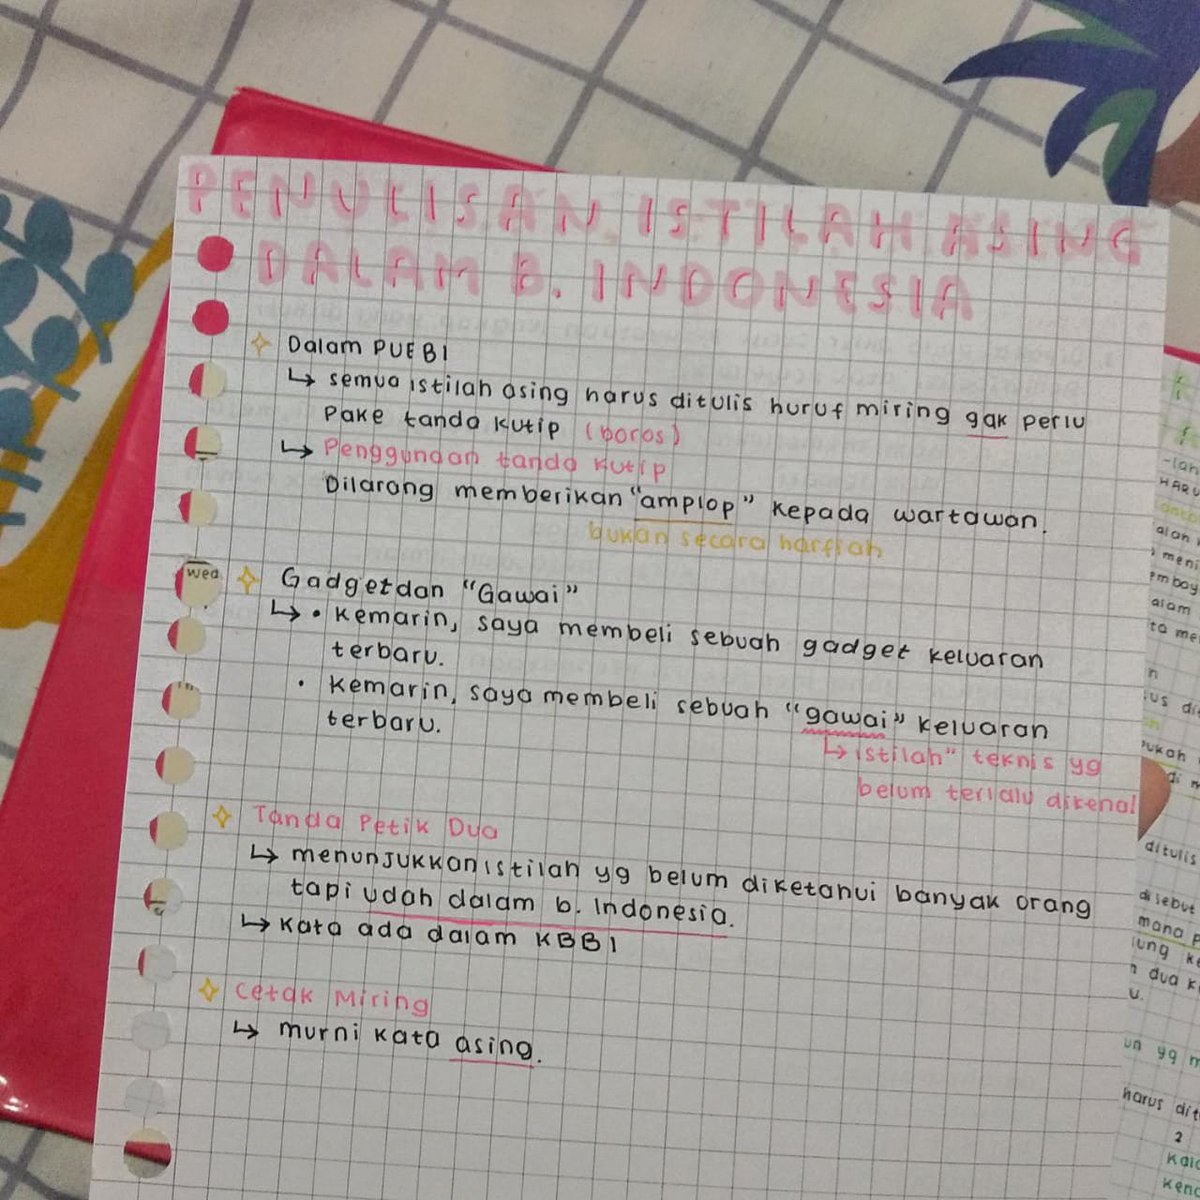 PENULISAN ISTILAH ASING
DALAM B. INDONESIA
Dalam PUEBI
↳ semua istilah asing harus ditulis huruf miring gak perlu
pake tanda kutip (boros)
↳ Penggunaan tanda kutip
Dilarang memberikan "amplop" kepada wartawan.
bukan secara harfiah
wed
Gadget dan "Gawai"
↳ • Kemarin, saya membeli sebuah gadget keluaran
terbaru.
• Kemarin, saya membeli sebuah "gawai" keluaran
terbaru.
↳ istilah" teknis yg
belum terlalu dikenal
Tanda Petik Dua
↳ menunjukkan istilah yg belum diketahui banyak orang
tapi udah dalam b. Indonesia.
↳ Kata ada dalam KBBI
Cetak Miring
↳ murni kata asing.
ditulis
disebut
mana
dua
yg
harus
2